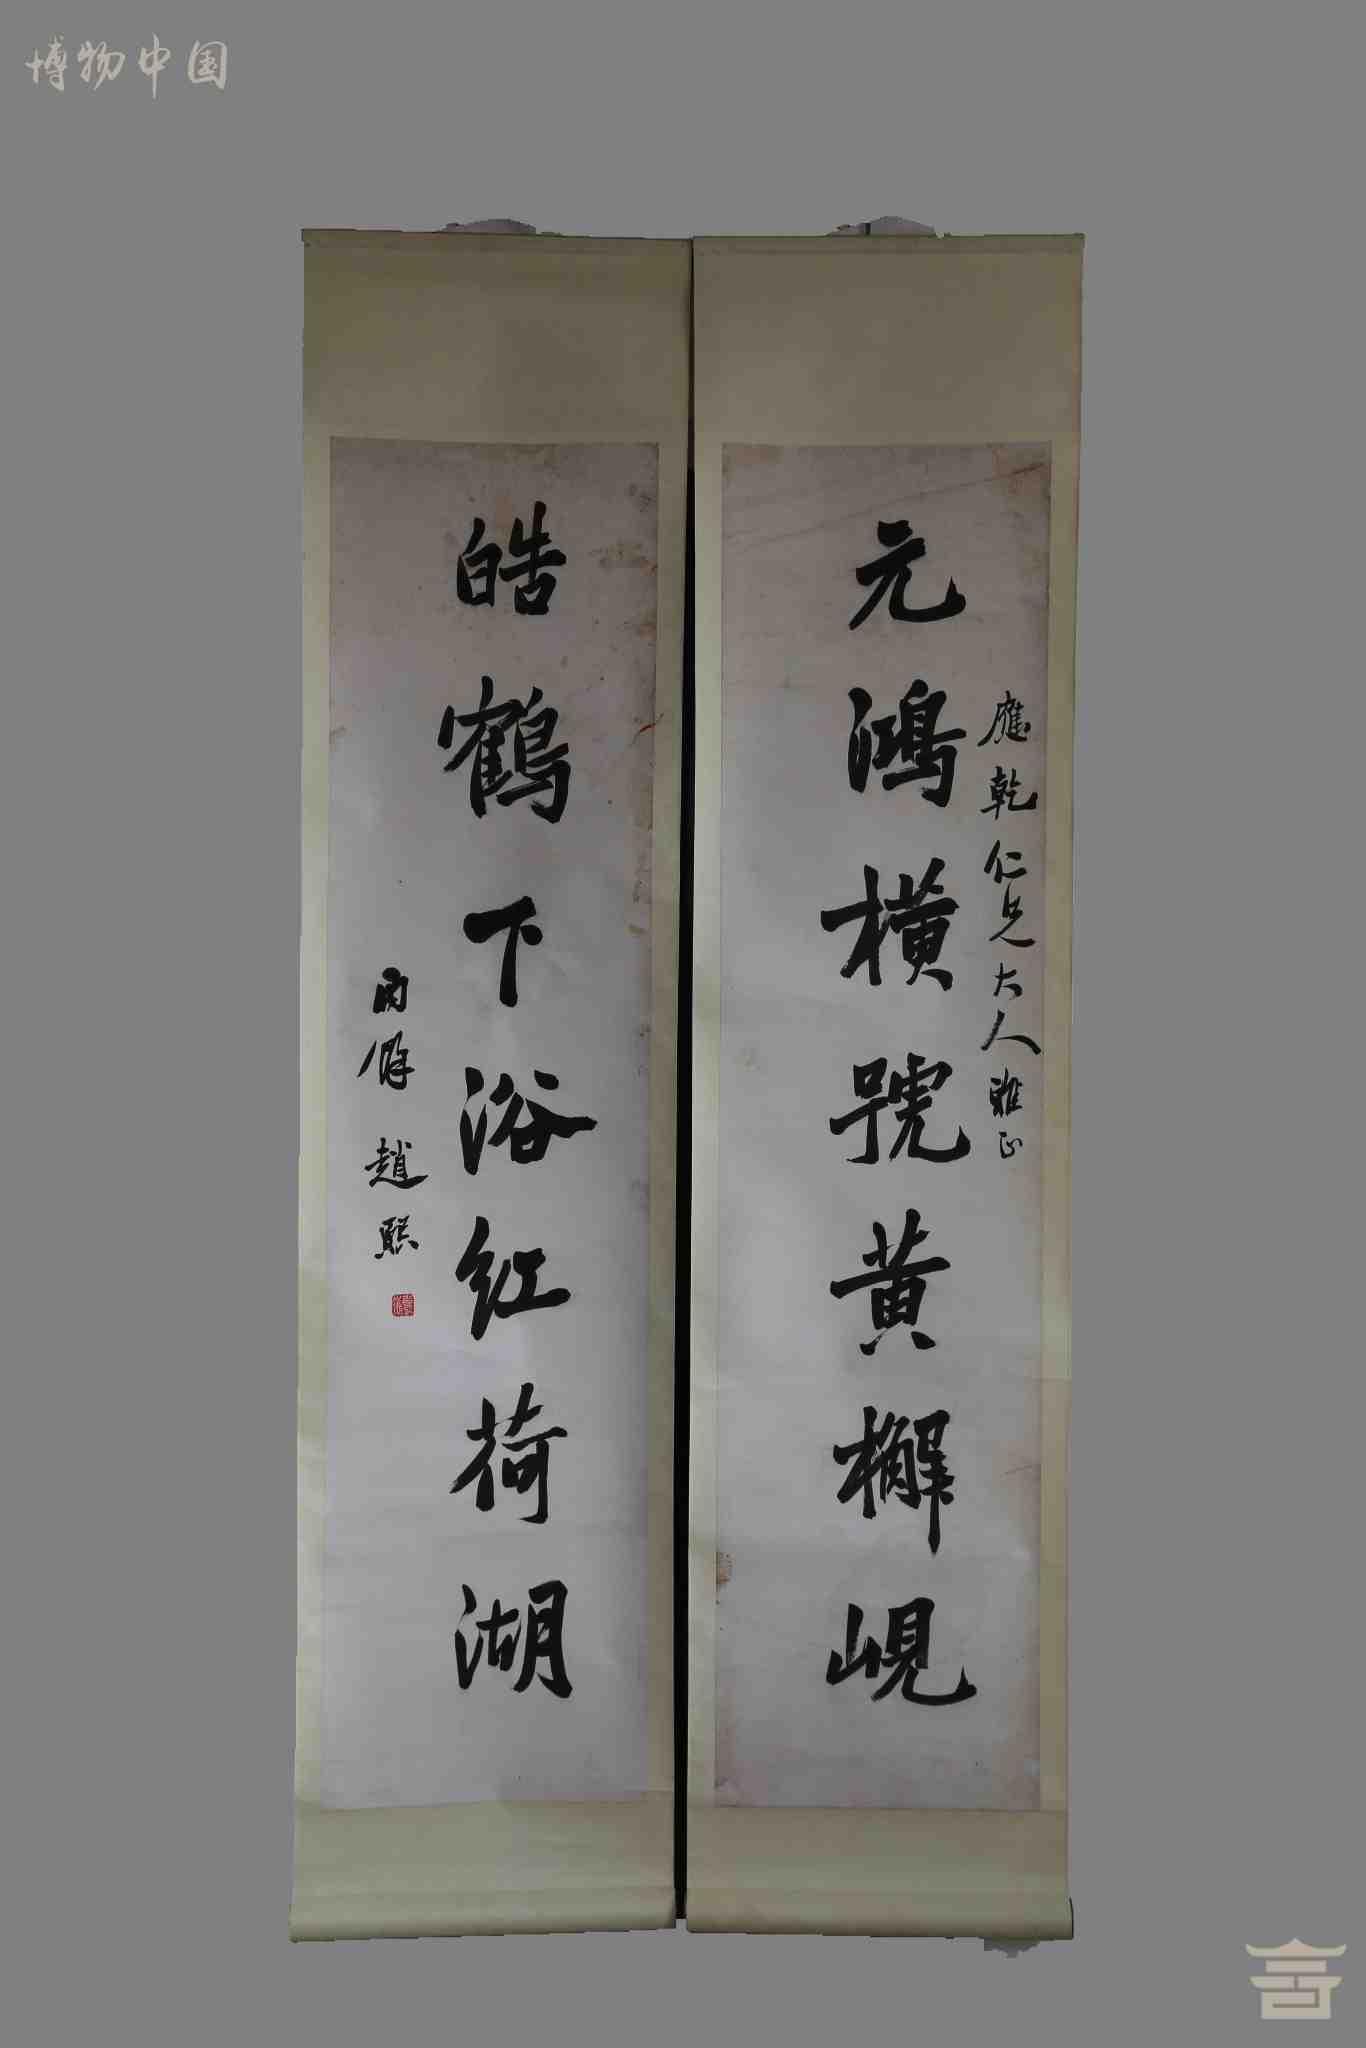 博物中国
應乾仁兄大人雅正
元鴻橫號黃檞峴
皓鶴下浴紅荷湖
丙餘趙熙